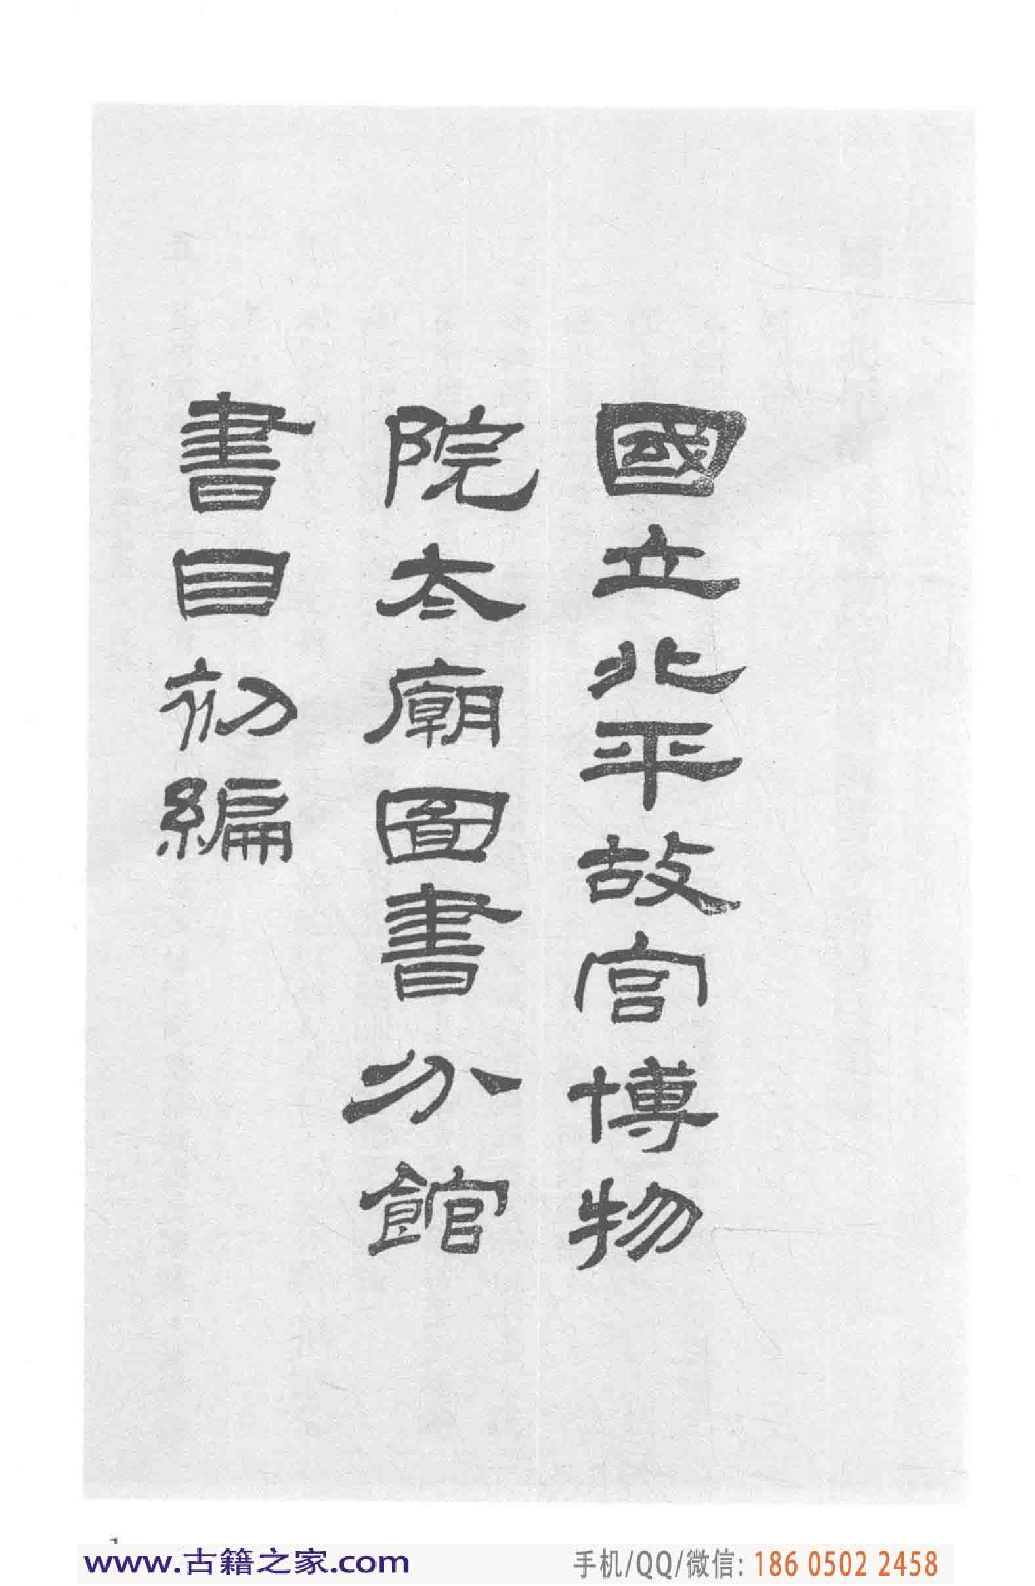 國立北平故宮博物
院太廟圖書分館
書目初編
www.古籍之家.com
手机/QQ/微信: 186 0502 2458